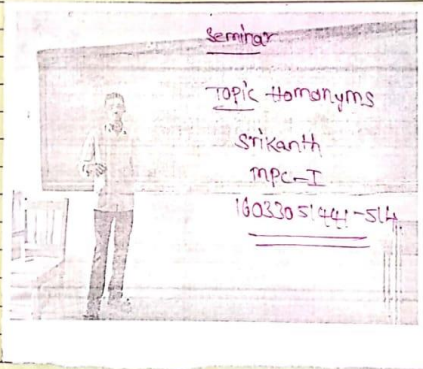 Seminar
Topic Homonyms
Srikanth
MPC-I
16033051441-514